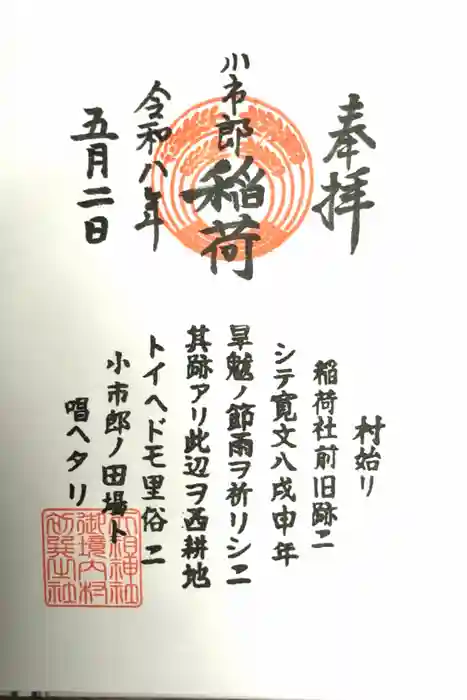 奉拝
小市郎
稲荷
令和八年
五月二日
村始リ
稲荷社前旧跡ニ
シテ寛文八戌申年
旱魃ノ節雨ヲ祈リシニ
其跡アリ此辺ヲ西耕地
トイヘドモ里俗ニ
小市郎ノ田場ト
唱ヘタリ
御境内村